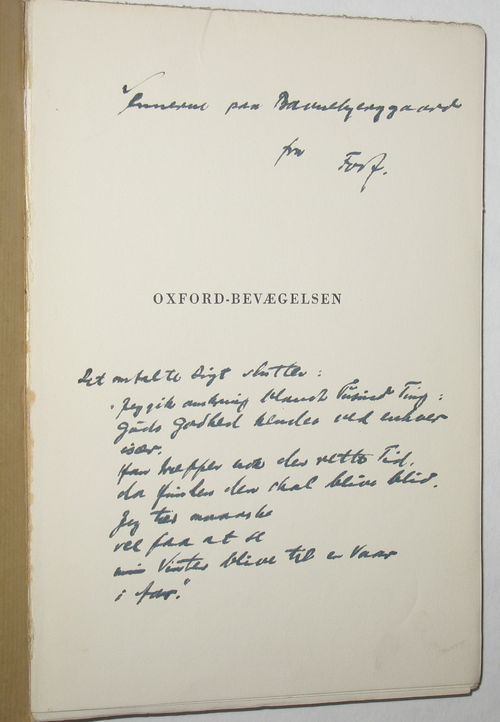 Vennerne paa Bavnebjerggaard
fra Forf.
OXFORD-BEVÆGELSEN
Det omtalte Digt slutter:
"Jeg gik omkring blandt Tusind Ting:
Guds Godhed kendes ved enhver
især.
Han træffer nok den rette Tid,
da Vinden den skal blive blid.
Jeg tør maaske
vel faa at se
min Vinter blive til en Vaar
i Aar."